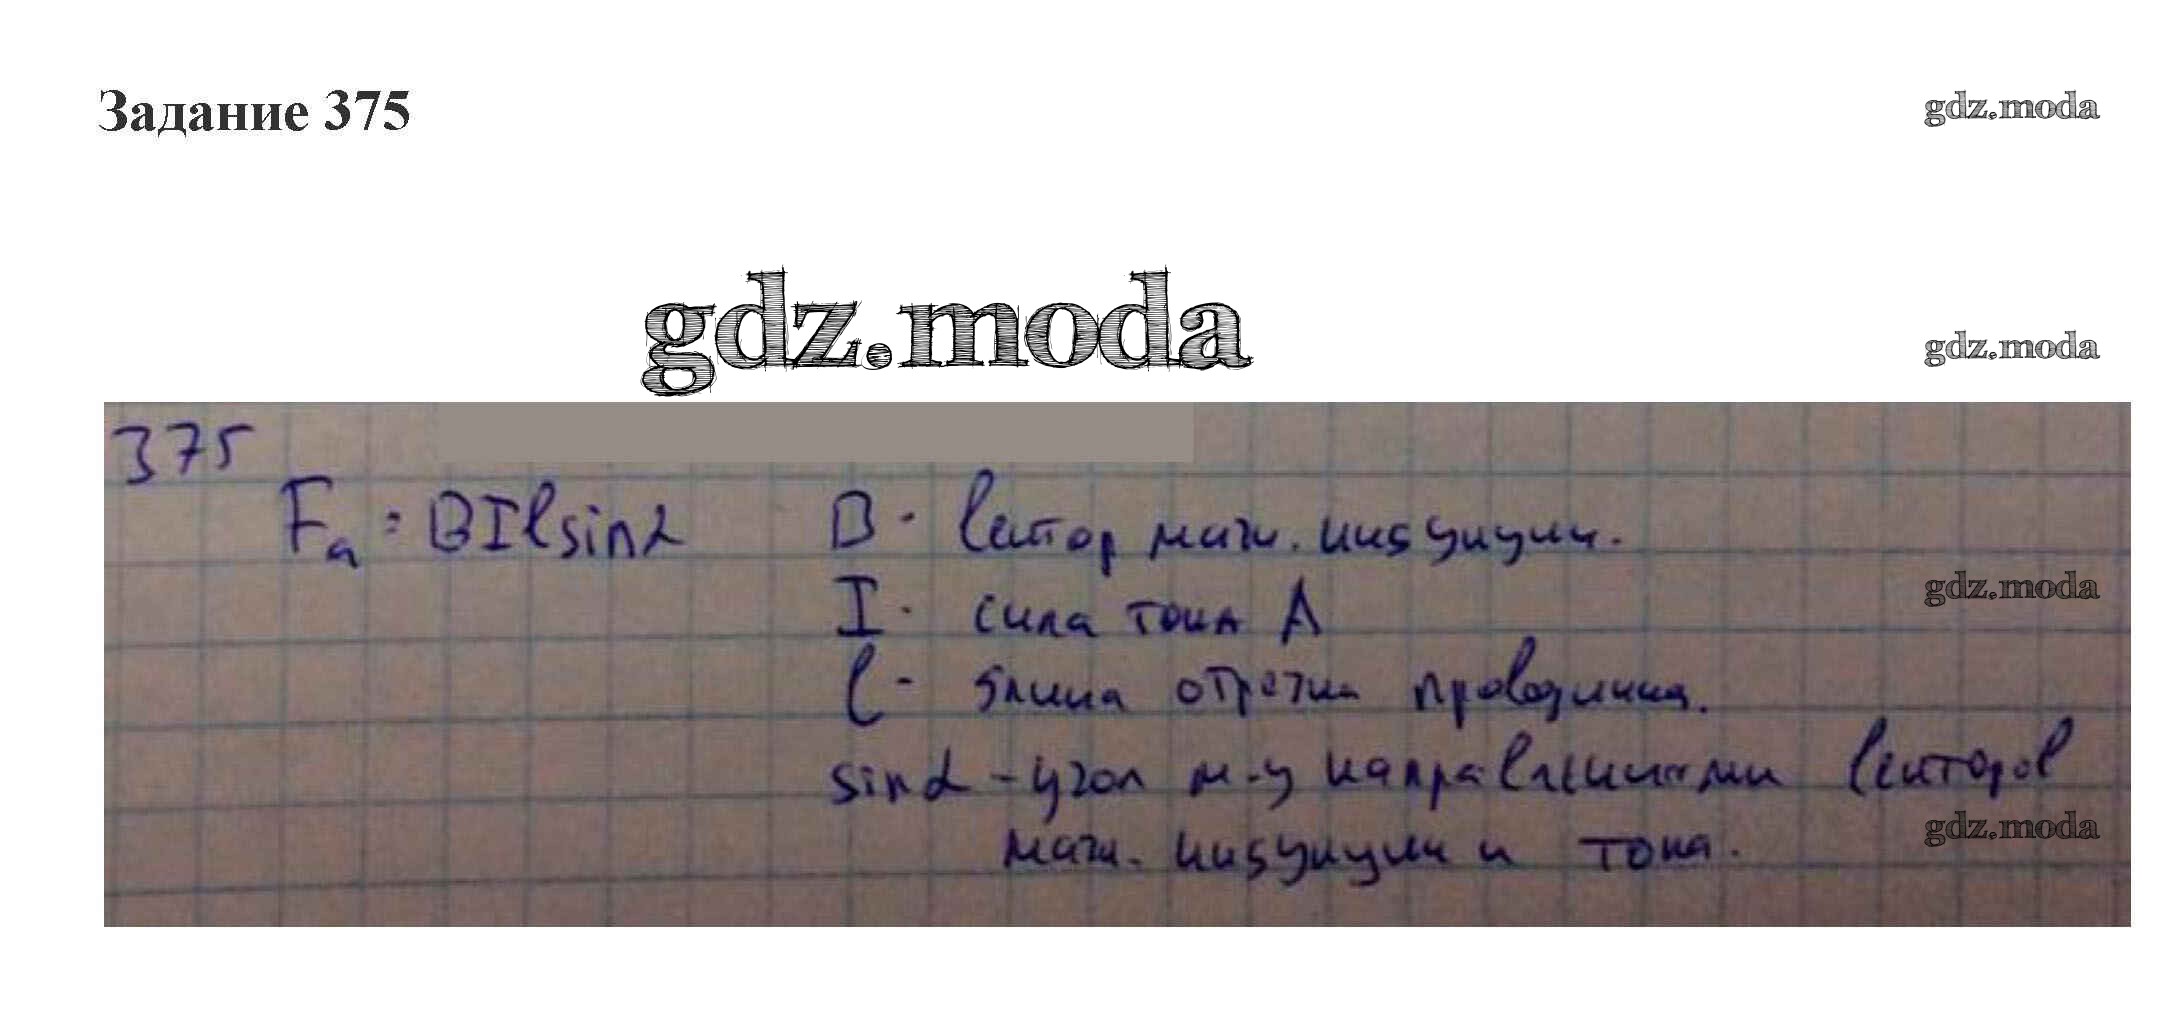 Задание 375
gdz.moda
gdz.moda
gdz.moda
375
Fa = BIlsinα
B - вектор магн. индукции.
I - сила тока А
gdz.moda
l - длина отрезка проводника.
sinα - угол м-у направлениями векторов
магн. индукции и тока.
gdz.moda